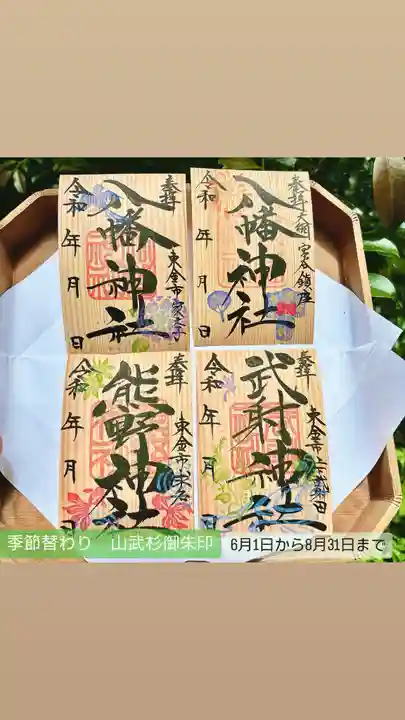 奉拝
八幡神社
令和 年 月 日
奉拝
八幡神社
令和 年 月 日
奉拝
熊野神社
東金市
令和 年 月 日
奉拝
武射神社
東金市
令和 年 月 日
季節替わり 山武杉御朱印
6月1日から8月31日まで